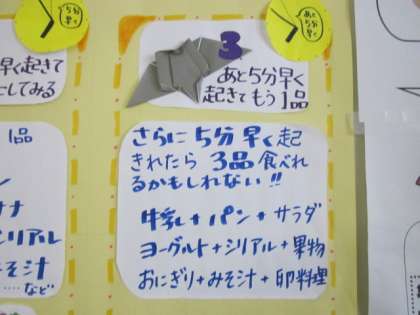 あと
5分
早く
あと
5分
早く
早く起きて
にしてみる
3
あと5分早く
起きてもう1品
1品
ン
ナナ
シリアル
みそ汁
…など
さらに5分早く起
きれたら3品食べれ
るかもしれない!!
牛乳+パン+サラダ
ヨーグルト+シリアル+果物
おにぎり+みそ汁+卵料理